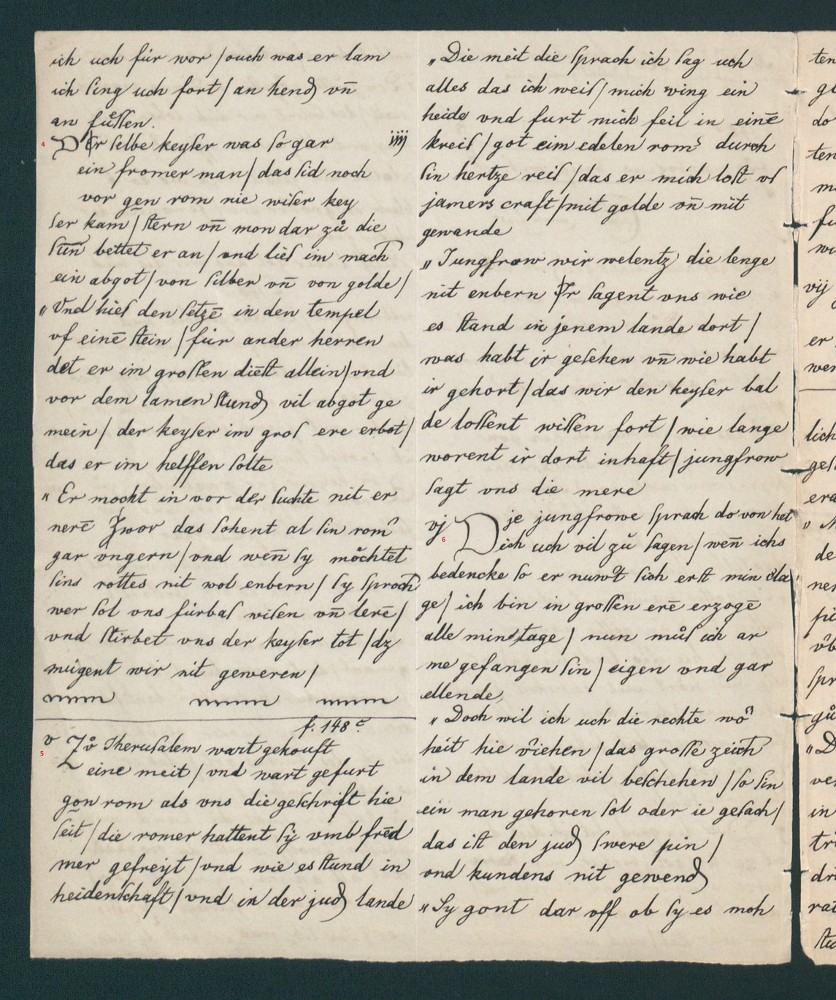 ich uch für wor / ouch was er lam
ich sing uch fort / an hend vn̄
an füssen.
4 DEr selbe keyser was so gar iiij
ein fromer man / das sid noch
vor gen rom nie wiser key
ser kam / stern vn̄ mon dar zů die
sun̄ bettet er an / vnd lies im mach
ein abgot / von silber vn̄ von golde /
„ Vnd hies den setzē in den tempel
vf einē stein / für ander herren
det er im grossen diēst allein / vnd
vor dem lamen stund vil abgot ge
mein / der keyser im gros ere erbot /
das er im helffen solte
„ Er mocht in vor der suchte nit er
nerē Zwor das sohent al sin rom̄
gar vngern / vnd wen̄ sy möchtet
sins rottes nit wol enbern / sy sprach
wer sol vns fürbas wisen vn̄ lerē /
vnd stirbet vns der keyser tot / dz
mügent wir nit geweren /
f. 148 c
v 5 Zů Jherusalem wart gekouft
eine meit / vnd wart gefurt
gon rom als vns die geschrift hie
seit / die romer hattent sÿ vmb fred
mer gefreyt / vnd wie es stund in
heidenschaft / vnd in der jud lande
„ Die meit die sprach ich sag uch
alles das ich weis / mich wing ein
heide vnd furt mich feil in einē
kreis / got eim edelen rom durch
sin hertze reis / das er mich lost vs
jamers craft / mit golde vn̄ mit
gewande
„ Jungfrow wir welentz die lenge
nit enbern Ir sagent vns wie
es stand in jenem lande dort /
was habt ir gesehen vn̄ wie habt
ir gehort / das wir den keyser bal
de lossent wissen fort / wie lange
worent ir dort inhaft / jungfrow
sagt vns die mere
vj 6 Die jungfrowe sprach do von het
Dich uch vil zů sagen / wen̄ ichs
bedencke so er nuwt sich erst min cla
ge / ich bin in grossen erē erzogē
alle min tage / nun můs ich ar
me gefangen sin / eigen vnd gar
ellende,
„ Doch wil ich uch die rechte wo
heit hie v̈iehen / das grosse zeich
in dem lande vil beschehen / so sin
ein man gehoren sol oder ie gesach /
das ist den jud swere pin /
vnd kundens nit gewend
„ Sy gont dar vff ob sy es moh